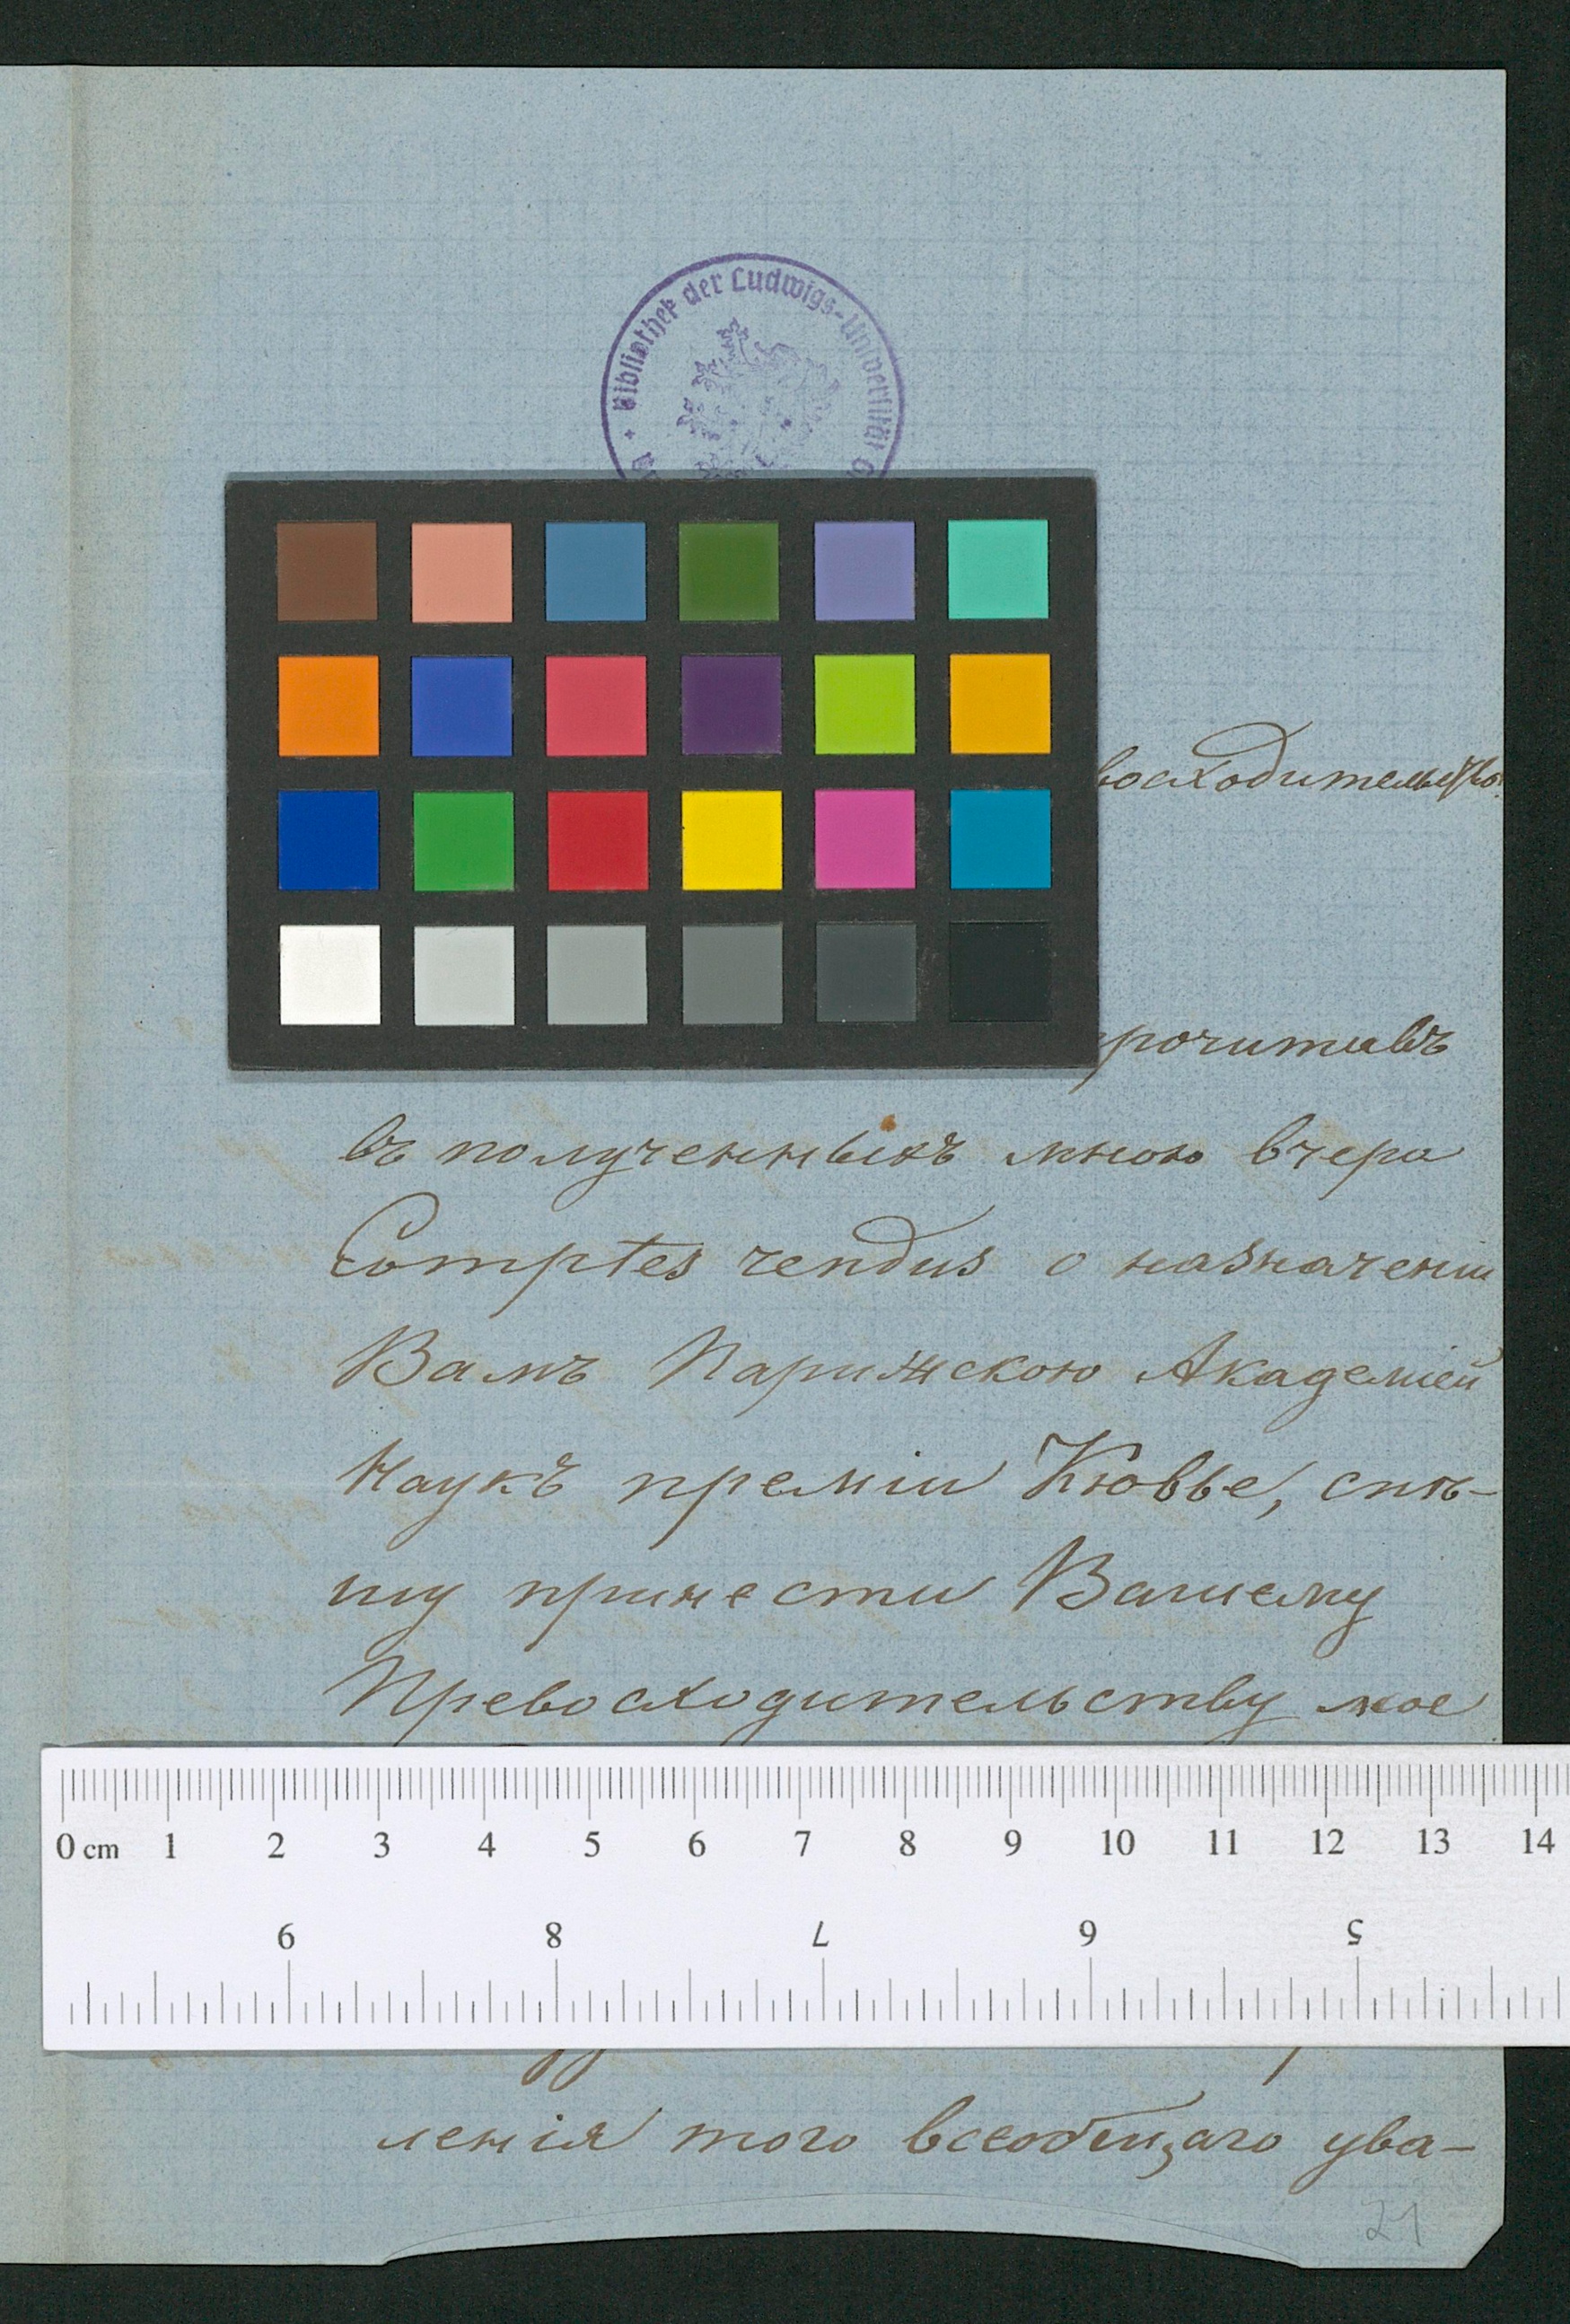 Bibliothek der Ludwigs-Universität
восходительство!
прочитавъ
въ полученныхъ мною вчера
Comptes rendus о назначеніи
Вамъ Парижскою Академіей
Наукъ преміи Кювье, спѣ-
шу принести Вашему
Превосходительству мое
0 cm 1 2 3 4 5 6 7 8 9 10 11 12 13 14
9 8 7 6 5
ленія того всеобщаго ува-
21